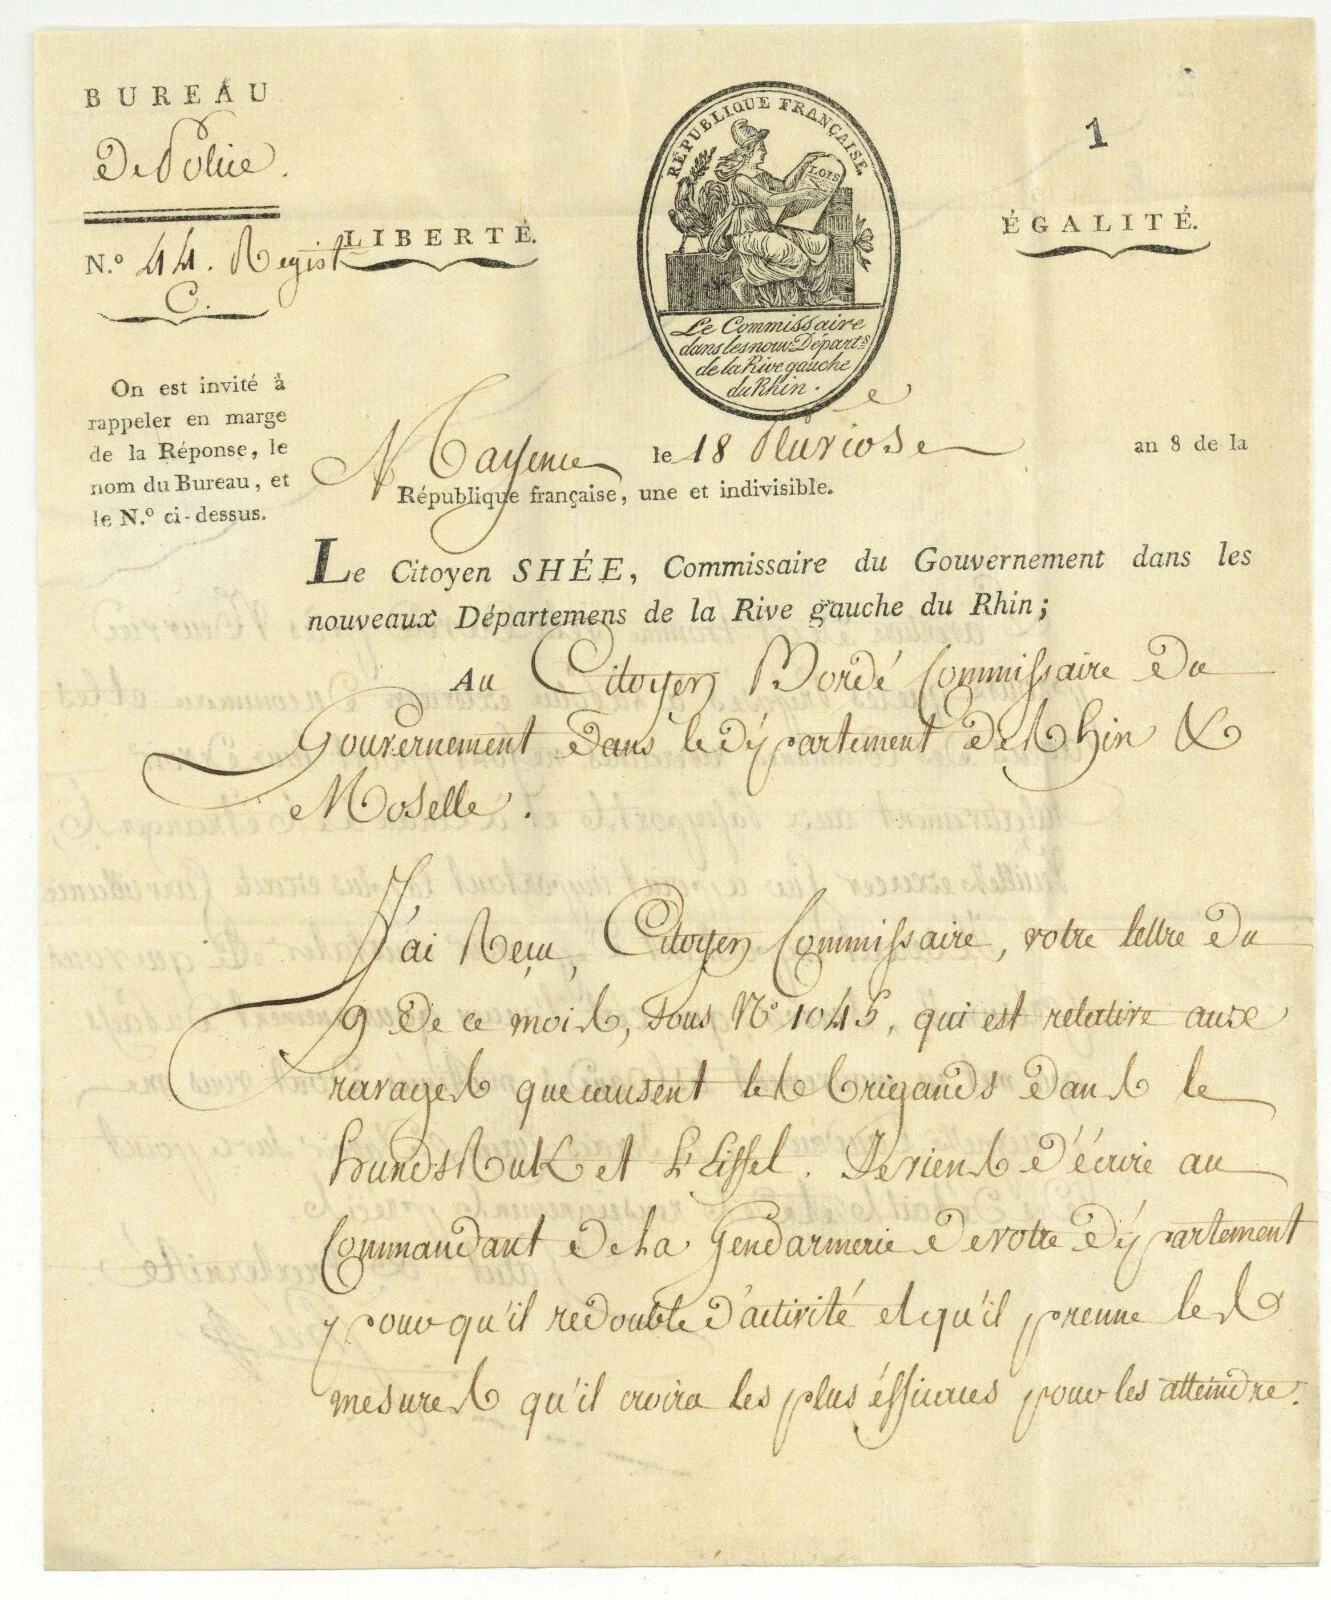 BUREAU
De Police.
N.º 44. Regist
C.
On est invité à
rappeler en marge
de la Réponse, le
nom du Bureau, et
le N.º ci-dessus.
LIBERTÉ.
RÉPUBLIQUE FRANÇAISE.
LOIS
Le Commissaire
dans les nouv. Départ.s
de la Rive gauche
du Rhin.
1
ÉGALITÉ.
Mayence le 18 Pluviose an 8 de la
République française, une et indivisible.
Le Citoyen SHÉE, Commissaire du Gouvernement dans les
nouveaux Départemens de la Rive gauche du Rhin;
Au Citoyen Bordé Commissaire du
Gouvernement dans le département de Rhin &
Moselle.
J'ai Reçu, Citoyen Commissaire, votre lettre du
9 de ce mois, sous Nº 1045, qui est relative aux
ravages que causent les brigands dans le
hundsRuck et L'Eiffel. Je viens d'écrire au
Commandant de la Gendarmerie de votre département
pour qu'il redouble d'activité et qu'il prenne les
mesures qu'il croira les plus éfficaces pour les atteindre.